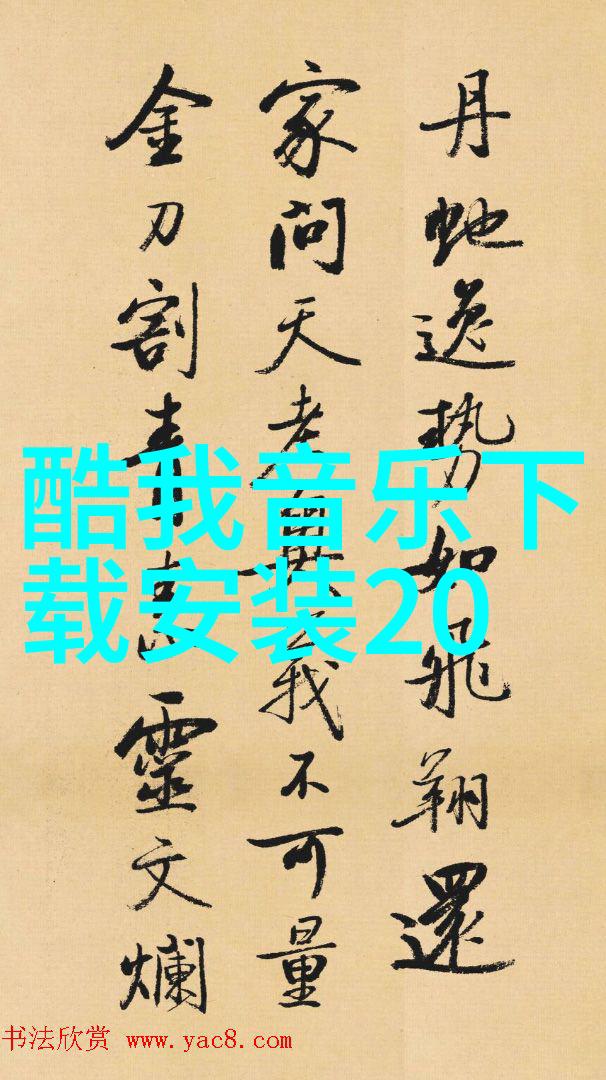 丹虵逸势如飛翔還
家問天老義不可量
金刀割青靈文爛
酷我音乐下
载安装20
书法欣赏 www.yac8.com